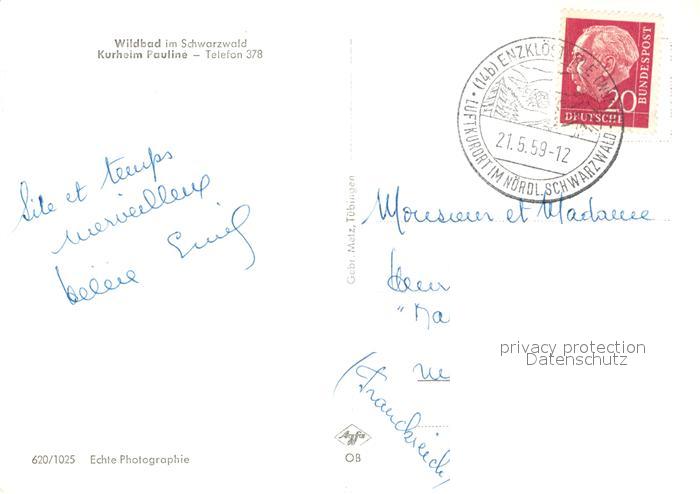 Wildbad im Schwarzwald
Kurheim Pauline – Telefon 378
Site et temps
merveilleux
Hélène Emil
620/1025 Echte Photographie
Gebr. Metz, Tübingen
(14b) ENZKLÖSTERLE
21.5.59-12
• LUFTKURORT IM NÖRDL. SCHWARZWALD
20
DEUTSCHE
BUNDESPOST
Monsieur et Madame
Henr
"Da
(Frankreich)
Agfa
OB
privacy protection
Datenschutz